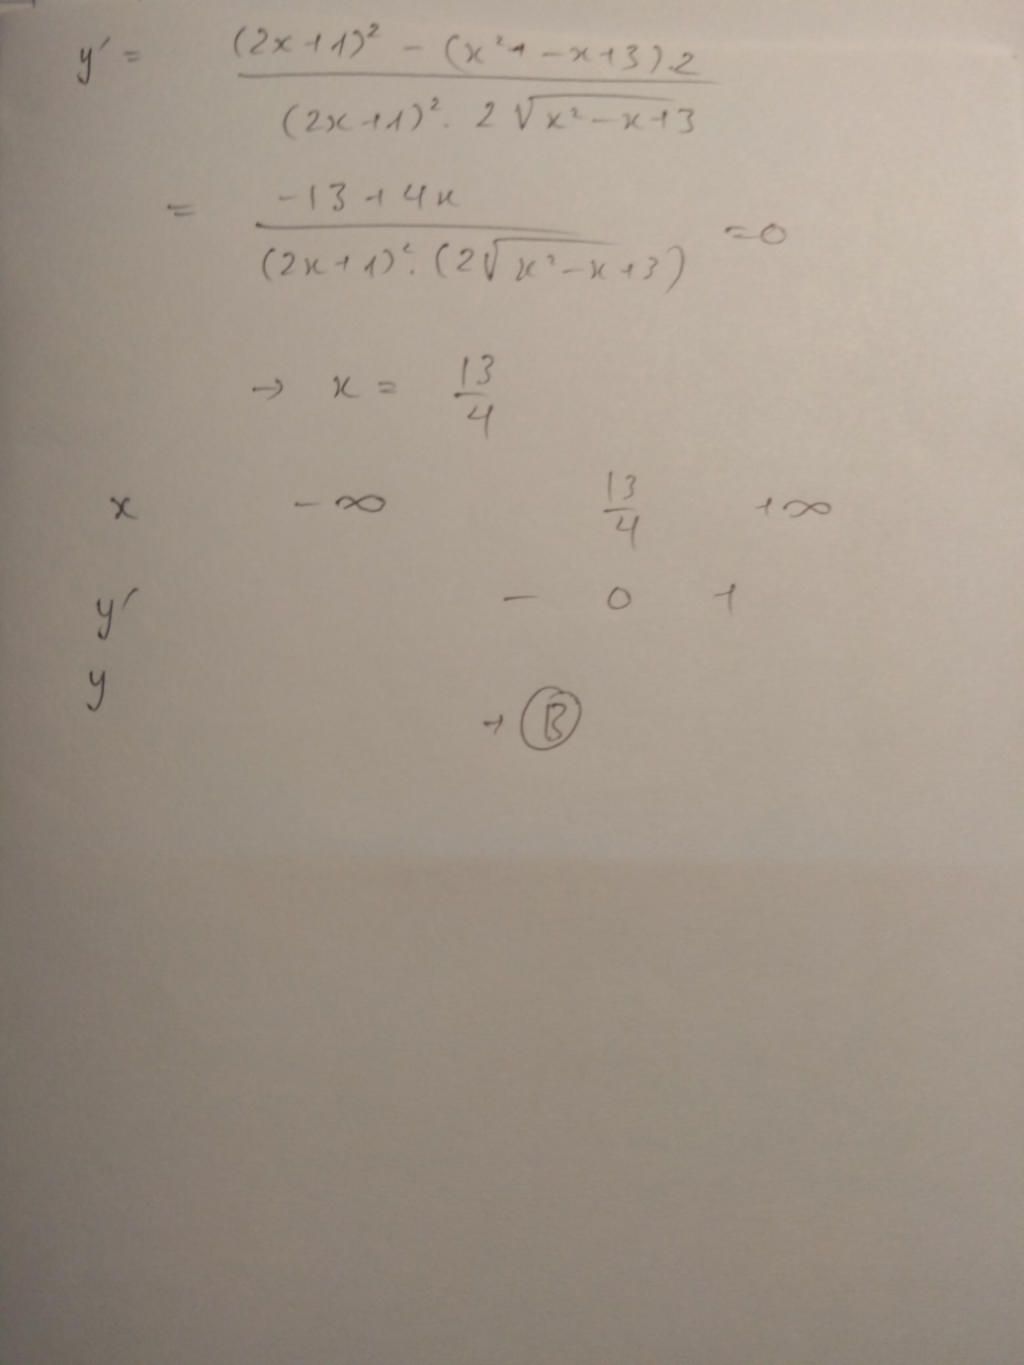 y' = ((2x+1)² - (x²+ -x+3).2) / ((2x+1)². 2√(x²-x+3))
= (-13+4x) / ((2x+1)².(2√(x²-x+3))) =0
→ x = 13/4
x -∞ 13/4 +∞
y' - 0 +
y
→ B